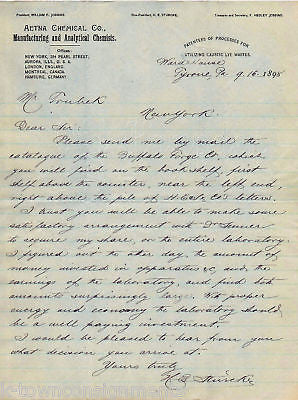 President, WILLIAM E. JOBBINS. Vice-President, H. E. STURCKE. Treasurer and Secretary, F. HEDLEY JOBBINS.
AETNA CHEMICAL CO.,
Manufacturing and Analytical Chemists.
Offices:
NEW YORK, 264 PEARL STREET,
AURORA, ILLS., U. S. A.
LONDON, ENGLAND.
MONTREAL, CANADA.
HAMBURG, GERMANY.
PATENTEES OF PROCESSES FOR
UTILIZING CAUSTIC LYE WASTES.
Ward House
Tyrone, Pa, 9.16.1895
Mr
New York.
Dear Sir:
Please send me by mail the
catalogue of the Buffalo Forge Co, which
you will find in the book shelf, first
shelf above the counter, near the left end,
right above the pile of letters.
I trust you will be able to make some
satisfactory arrangement with Dr
to acquire my share, or the entire laboratory.
I figured out the other day, the amount of
money invested in apparatus &c, and the
earnings of the laboratory, and find both
amounts surprisingly large. With proper
energy and economy the laboratory should
be a well paying investment.
I would be pleased to hear from you
what decision you arrive at.
Yours truly
H. E. Sturcke
k-townconsignments